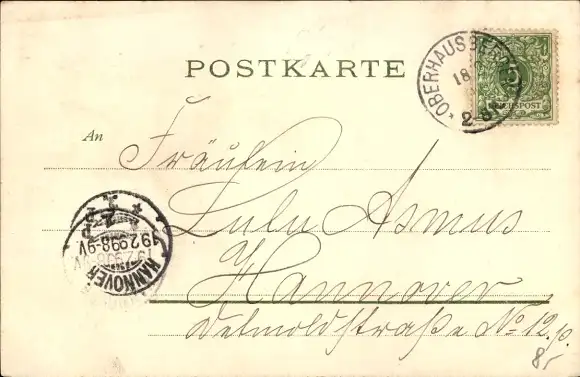 POSTKARTE
OBERHAUSBERGEN
18
2-3N
5
REICHSPOST
An
Fräulein
Lulu Asmus
Hannover
Detmoldstraße No 12. p.
HANNOVER
19.2.99.8-9V.
1.
8,-